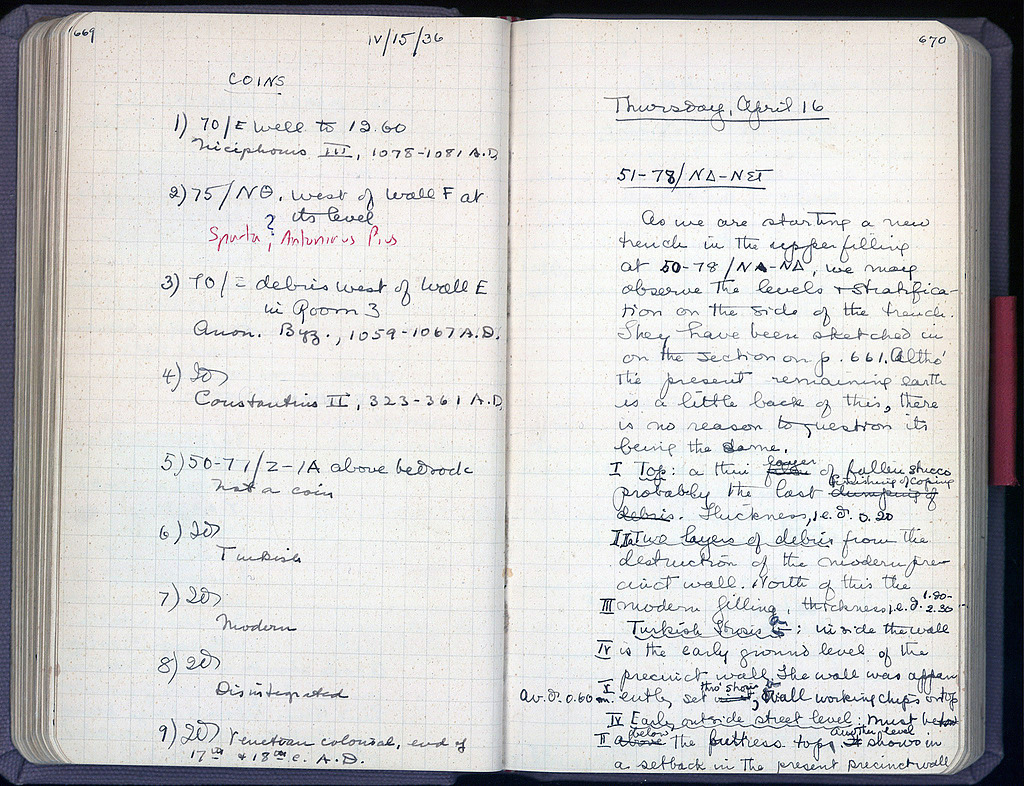 669
IV/15/36
COINS
1) 70/E well to 12.60
Niciphorus III, 1078-1081 A.D.
2) 75/NΘ, west of wall F at
its level
? Sparta, Antoninus Pius
3) 70/Ξ debris west of wall E
in Room 3
Anon. Byz., 1059-1067 A.D.
4)
Constantius II, 323-361 A.D.
5) 50-77/Z-IA above bedrock
Not a coin
6)
Turkish
7)
Modern
8)
Disintegrated
9) Venetian colonial, end of
17th & 18th c. A.D.
670
Thursday, April 16
51-78/NΔ-NΣΤ
As we are starting a new
trench in the upper filling
at 50-78/NA-NΔ, we may
observe the levels + stratifica-
tion on the side of the trench.
They have been sketched in
on the section on p. 661. Altho'
the present remaining earth
is a little back of this, there
is no reason to question its
being the same.
I Top: a thin layer of fallen stucco
probably the last finishing of coping
dumping of
debris. Thickness, 0.20
II Two layers of debris from the
destruction of the modern pre-
cinct wall. North of this the
III modern filling, thickness, 1.80-
2.30
Turkish : inside the wall
IV is the early ground level of the
precinct wall. The wall was appar-
ently set tho' show wall working chips on top
av. 0.60 m.
IV Early outside street level: must be
II above below the buttress top, another level shows in
a setback in the present precinct wall